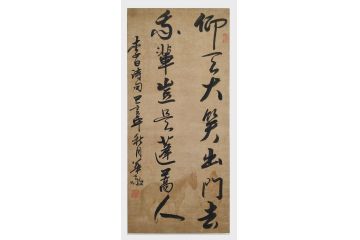 仰天大笑出門去
我輩豈是蓬蒿人
李白詩句 年秋月